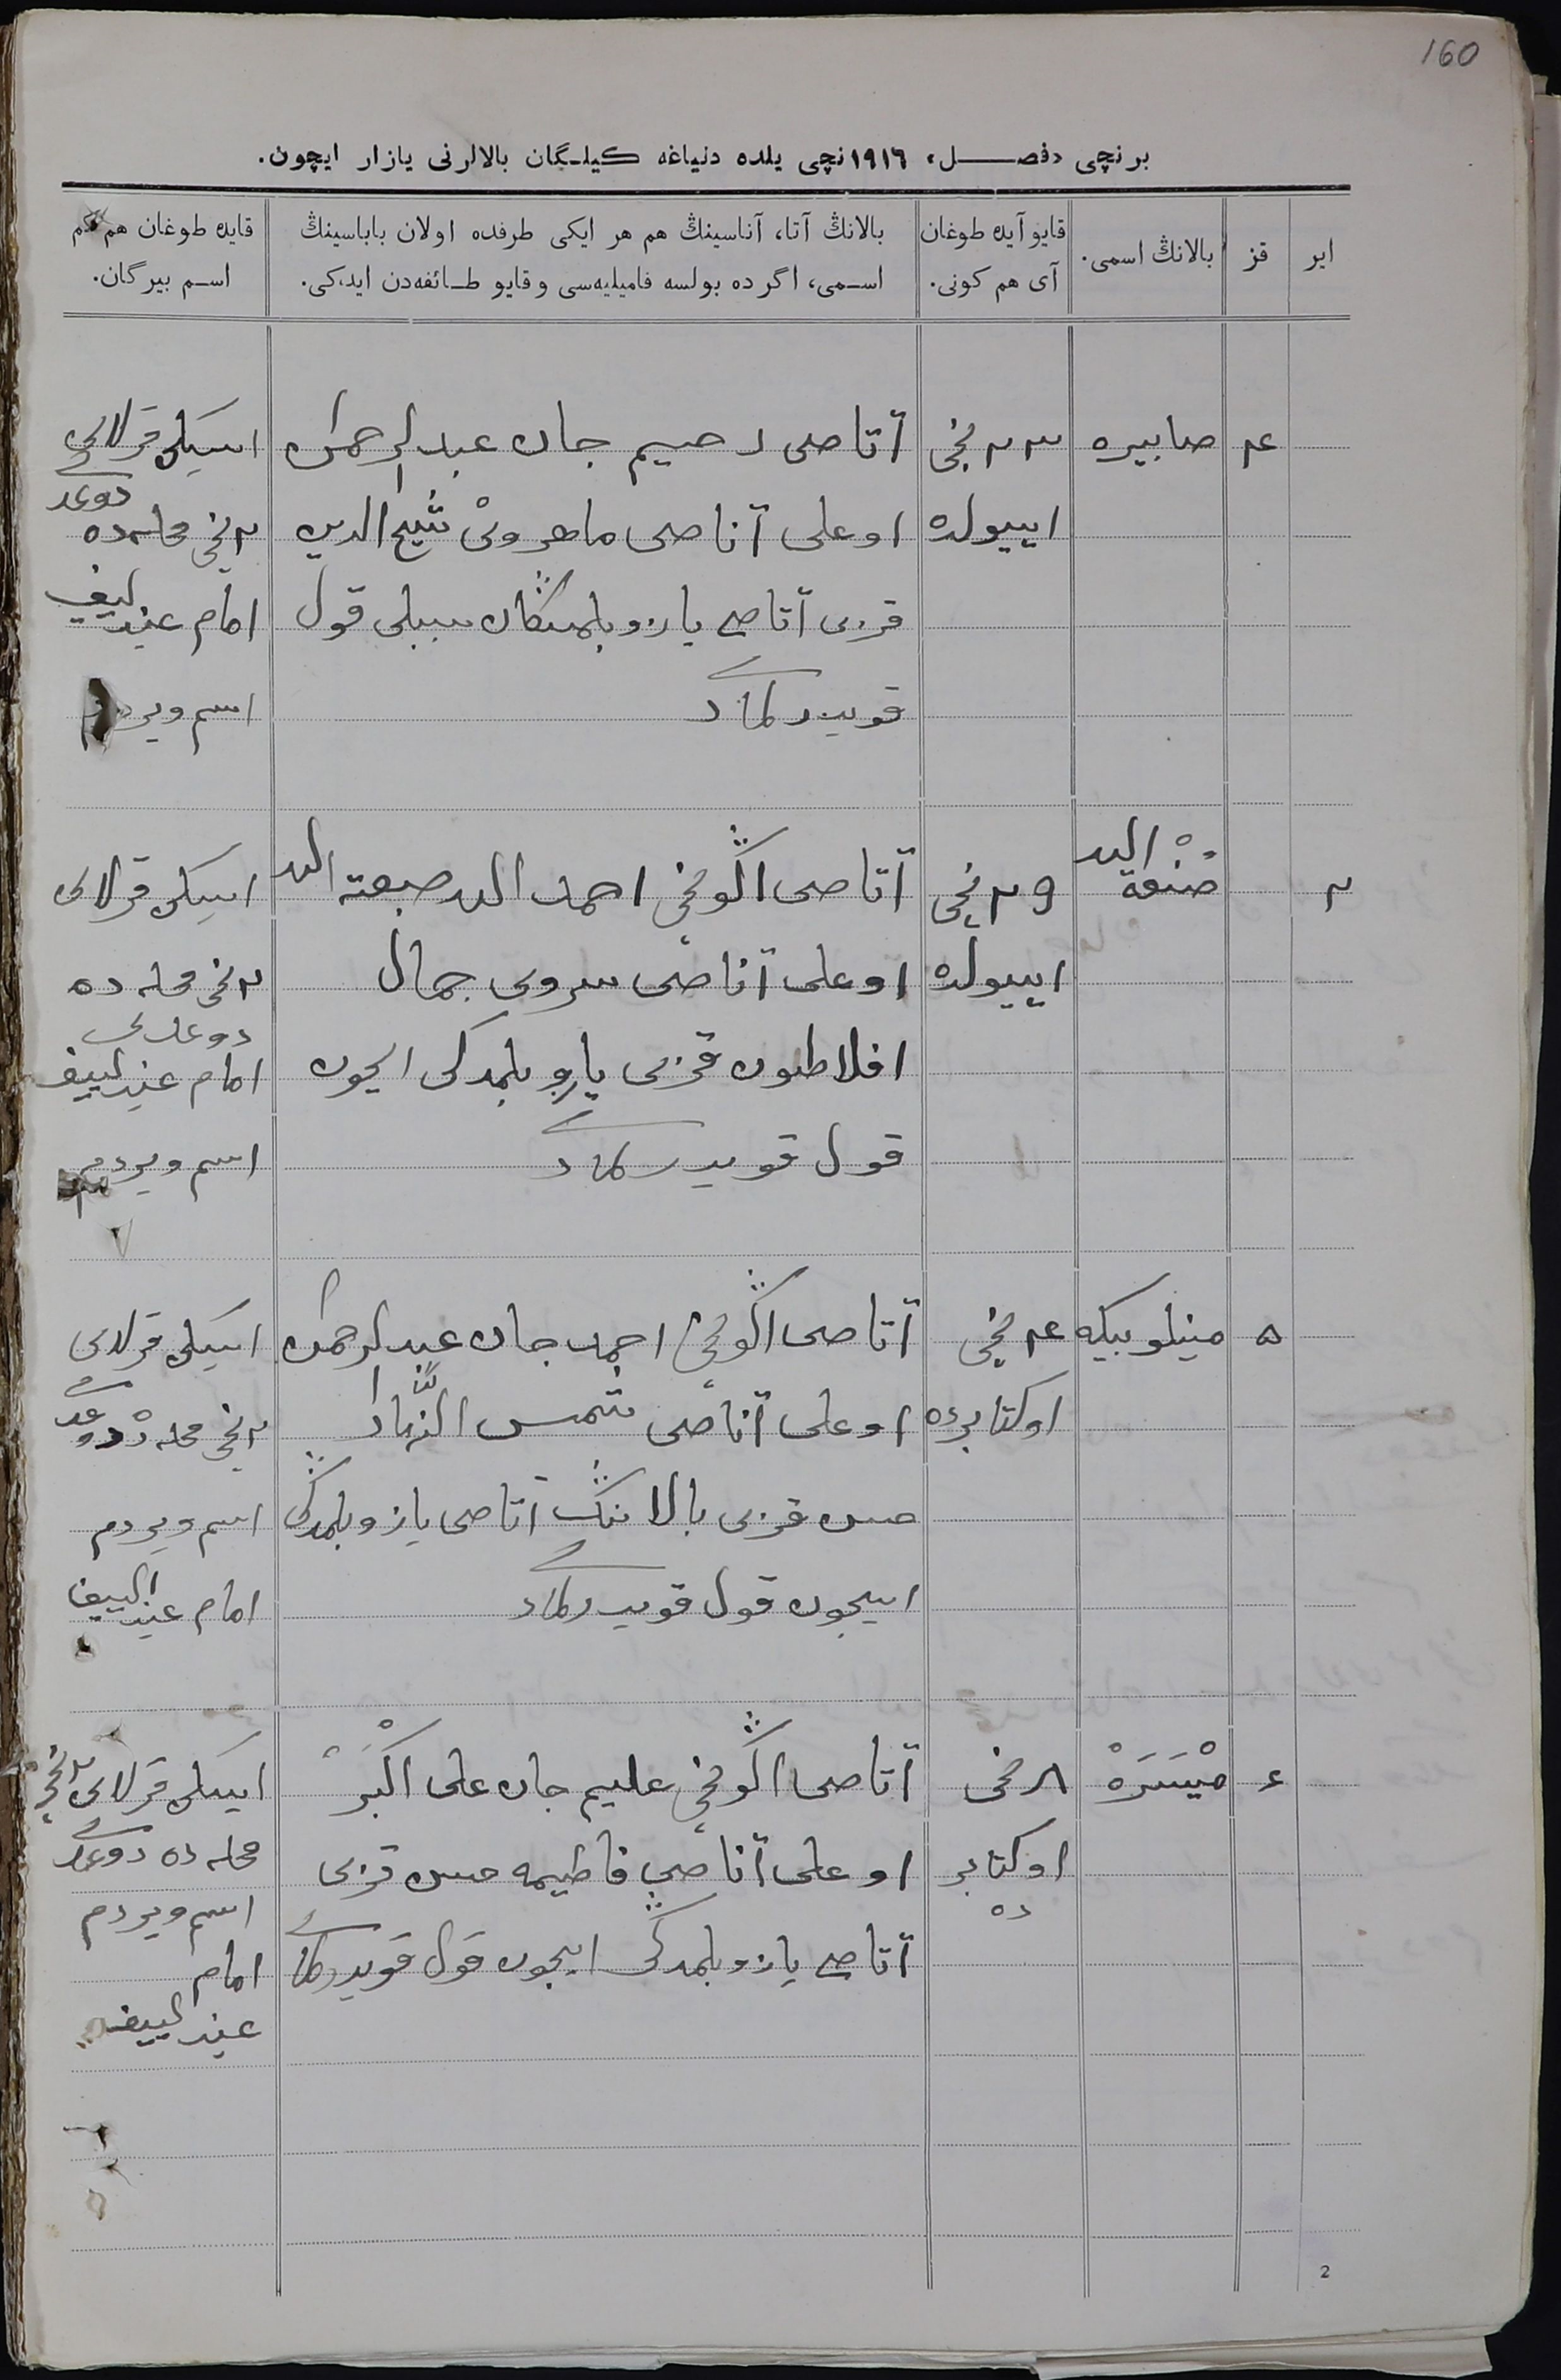 160
برنچی «فصل» ۱۹۱٦نچی یلده دنیاغه کیلـگان بالالرنی یازار ایچون.
ایر
قز
بالانڭ اسمی.
قایو آیده طوغان
آی هم کونی.
بالانڭ آتا، آناسینڭ هم هر ایکی طرفده اولان باباسینڭ
اسـمی، اگر ده بولسه فامیلیه‌سی و قایو طـائفه‌دن ایدکی.
قایده طوغان هم کم
اسـم بیرگان.
۴
صابیره
۲۳ نچی
اییولده
آتاصی رحیم جان عبدالرحمن
اوغلی آناصی ماهروی شیخ الدین
قزی آتاصی یازو بلمگان سببلی قول
قویدرلماد
ایسکی قرلای
۲ نچی محله‌ده
امام عیدلییف
اسم ویردم
۲
صنعة الله
۲۹ نچی
اییولده
آتاصی اڭونچی احمد الله صبغة الله
اوغلی آناصی سروی جمال
افلاطون قزی یازو بلمدکی ایچون
قول قویدرلماد
ایسکی قرلای
۲ نچی محله ده
دوغدی
امام عیدلییف
اسم ویردم
۵
مینلوبیکه
۴ نچی
اوکتابرده
آتاصی اڭونچی احمد جان عبدالرحمن
اوغلی آناصی شمس النهار
حسن قزی بالانڭ آتاصی یازو بلمدکی
ایچون قول قویدرلماد
ایسکی قرلای
۲ نچی محله ده دوغدی
اسم ویردم
امام عیدلییف
۶
میْسَرَهْ
۸ نچی
اوکتابر
ده
آتاصی اڭونچی علیم جان علی اکبر
اوغلی آناصی فاطیمه حسن قزی
آتاصی یازو بلمدکی ایچون قول قویدرلماد
ایسکی قرلای ۲ نچی
محله ده دوغدی
اسم ویردم
امام
عیدلییف
2